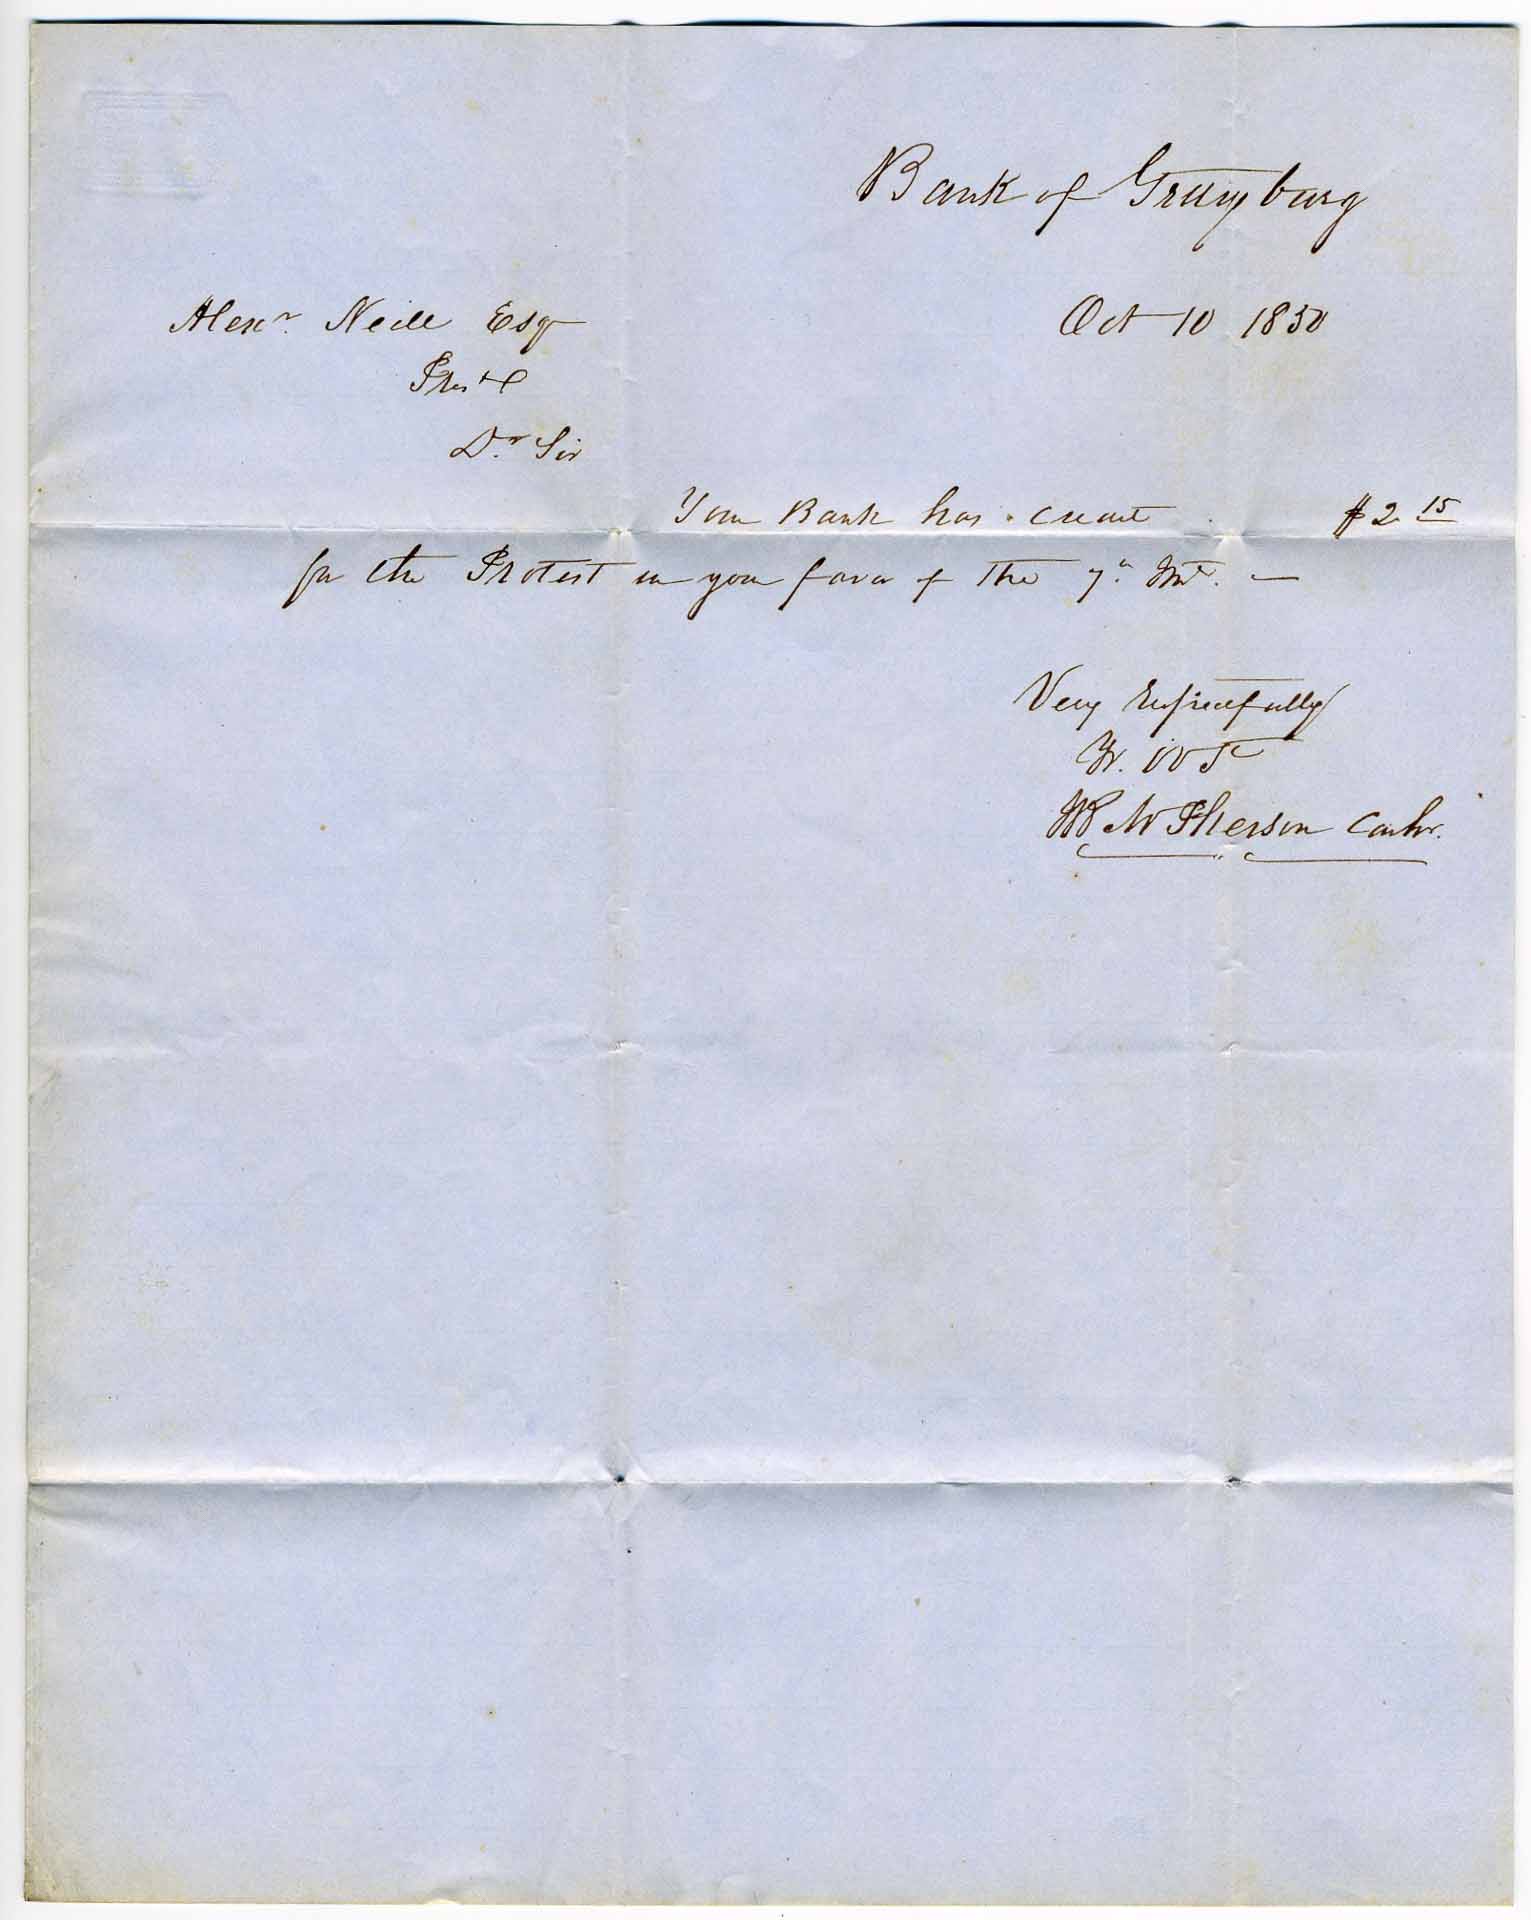 Bank of Gettysburg
Oct 10 1850
Alexr. Neill Esq
Prest
Dr. Sir
Your Bank has credit $2 15
for the Protest in your favor of the 7th Inst. —
Very respectfully
Yr. Obt
J B McPherson Cashr.